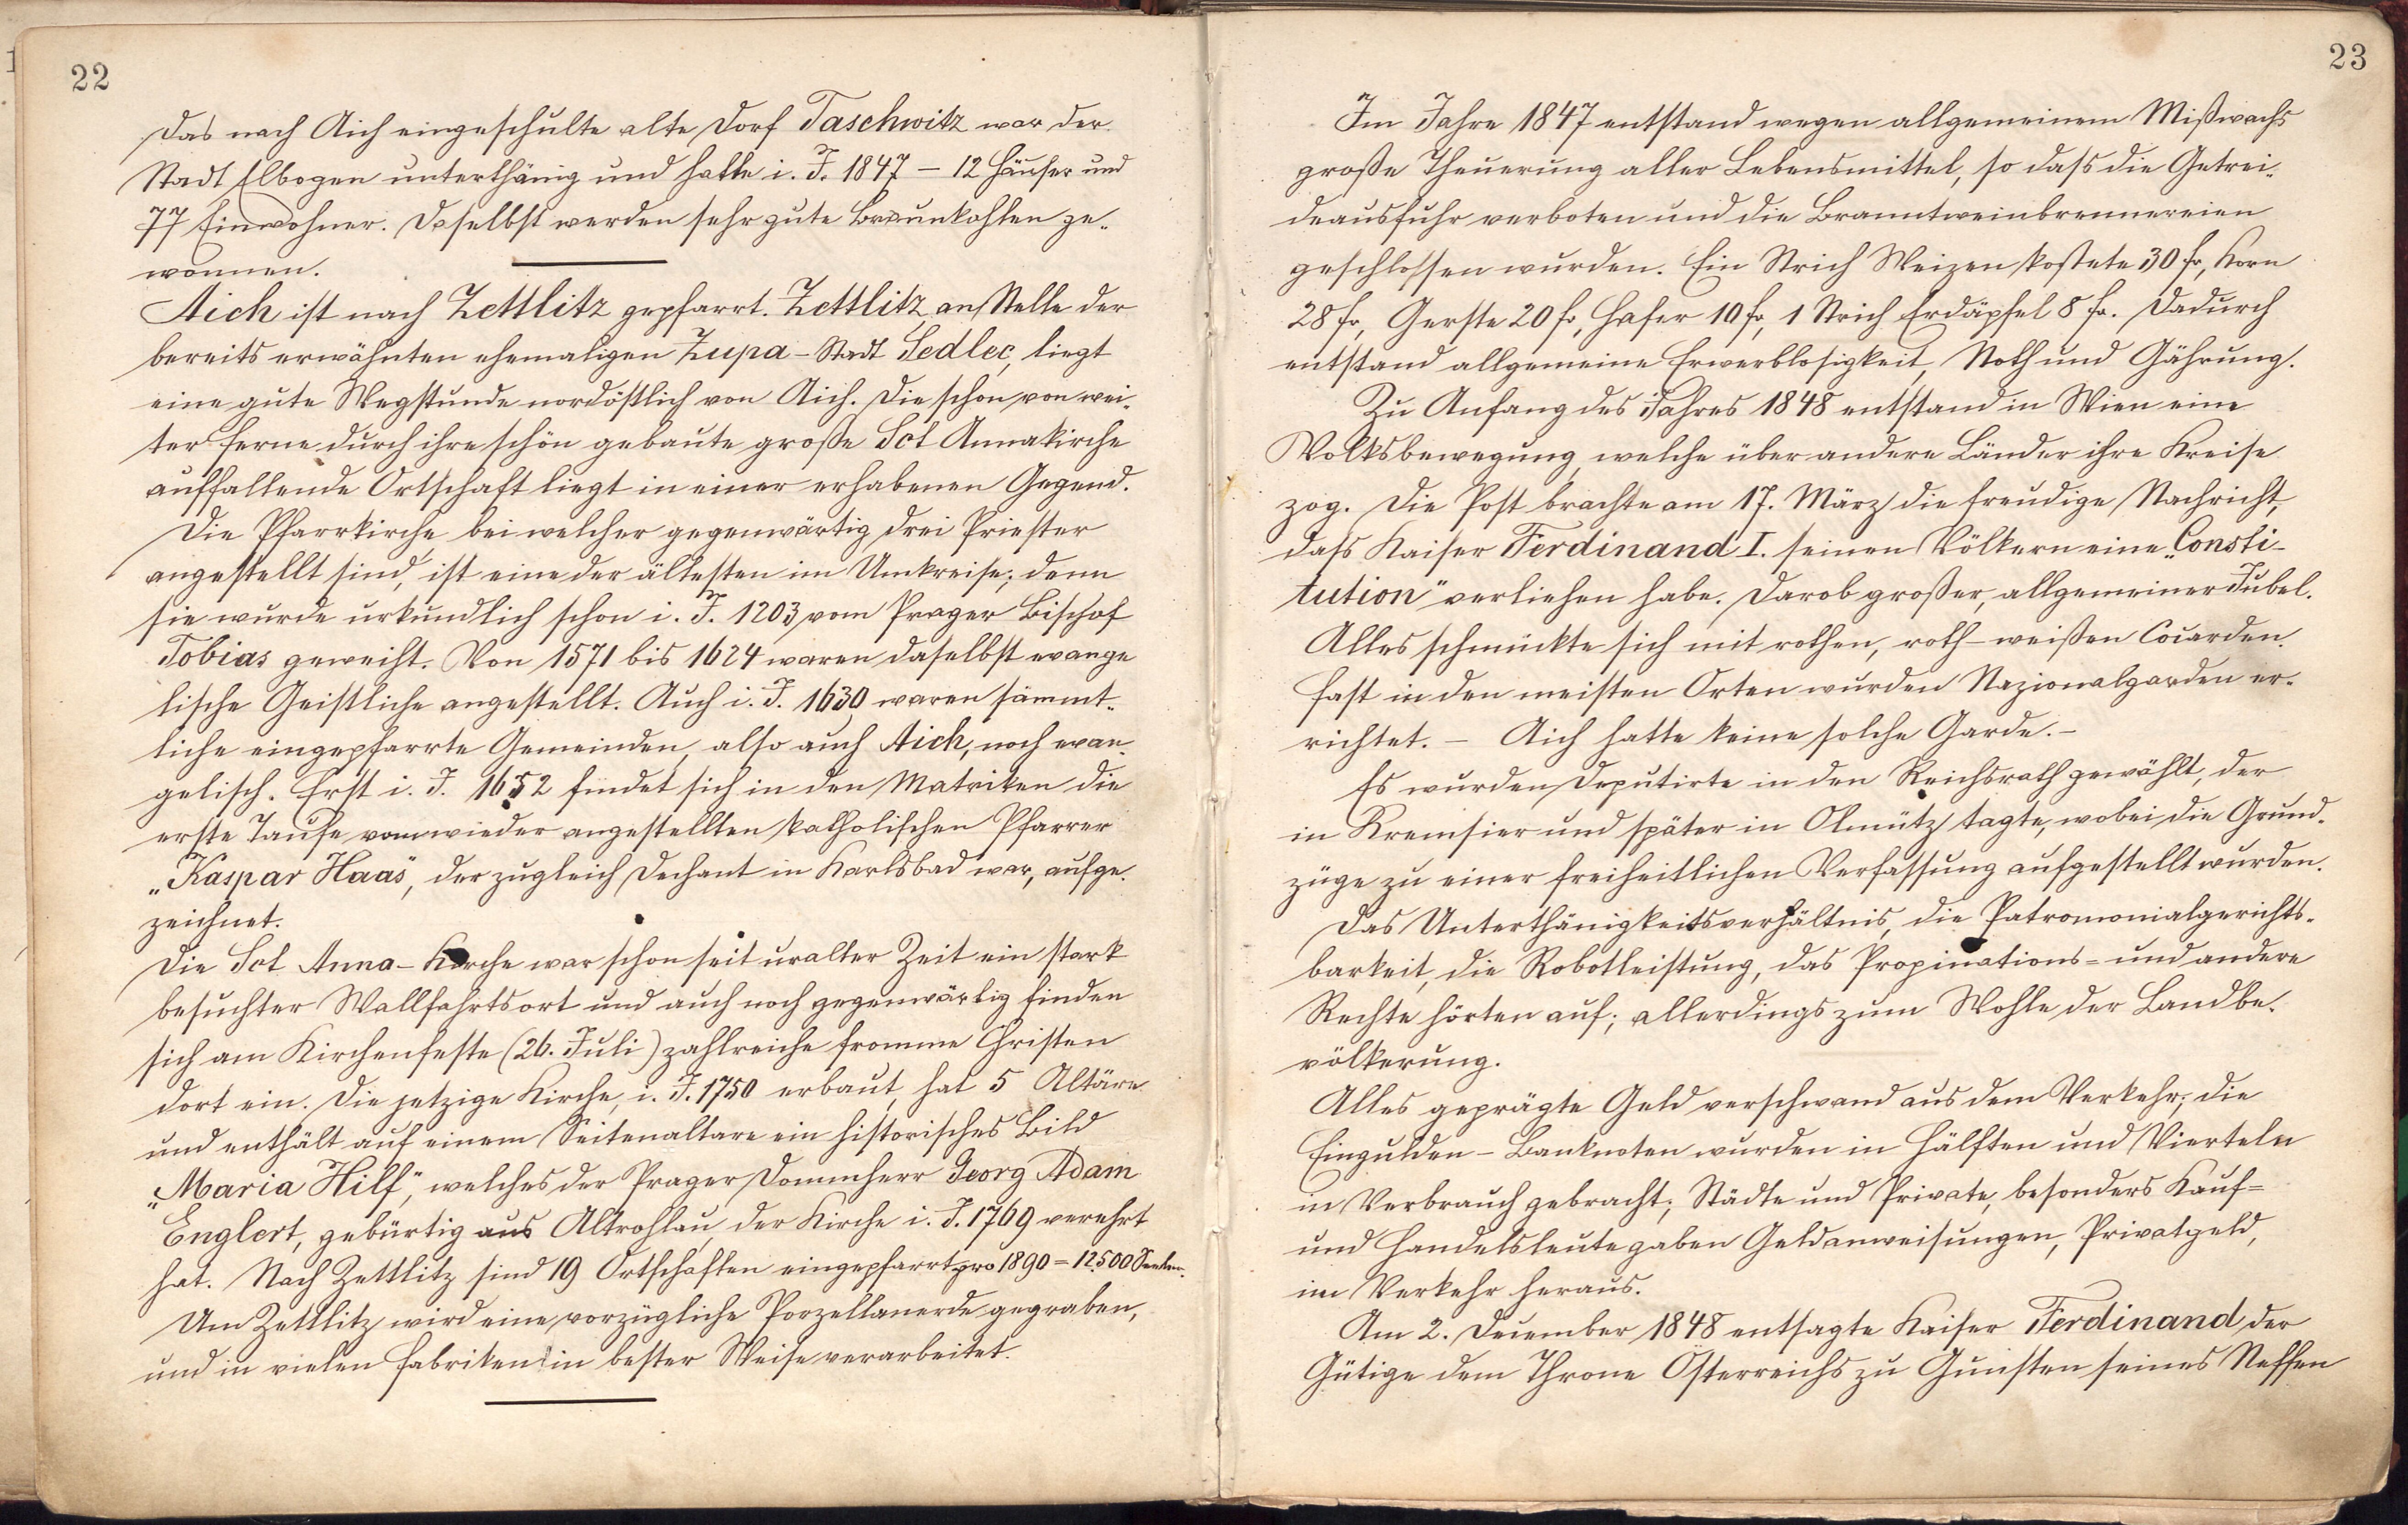 22
Das nach Aich eingeschulte alte Dorf Taschwitz war der
Stadt Elbogen unterthänig und hatte i. J. 1847 – 12 Häuser und
77 Einwohner. Daselbst werden sehr gute Braunkohlen ge-
wonnen.
Aich ist nach Zettlitz gepfarrt. Zettlitz, an Stelle der
bereits erwähnten ehemaligen Zupa-Stadt Sedlec, liegt
eine gute Wegstunde nordöstlich von Aich. Die schon von wei-
ter Ferne durch ihre schön gebaute große Sct Annakirche
auffallende Ortschaft liegt in einer erhabenen Gegend.
Die Pfarrkirche bei welcher gegenwärtig drei Priester
angestellt sind, ist eine der ältesten im Umkreise; denn
sie wurde urkundlich schon i. J. 1203 vom Prager Bischof
Tobias geweiht. Von 1571 bis 1624 waren daselbst evange
lische Geistliche angestellt. Auch i. J. 1630 waren sämmt-
liche eingepfarrte Gemeinden, also auch Aich, noch evan-
gelisch. Erst i. J. 1652 findet sich in den Matriken die
erste Taufe vom wieder angestellten katholischen Pfarrer
„Kaspar Haas", der zugleich Dechant in Karlsbad war, aufge-
zeichnet.
Die Sct Anna-Kirche war schon seit uralter Zeit ein stark
besuchter Wallfahrtsort und auch noch gegenwärtig finden
sich am Kirchenfeste (26. Juli) zahlreiche fromme Christen
dort ein. Die jetzige Kirche, i. J. 1750 erbaut, hat 5 Altäre
und enthält auf einem Seitenaltare ein historisches Bild
„Maria Hilf", welches der Prager Dommherr Georg Adam
Englert, gebürtig aus Altrohlau, der Kirche i. J. 1769 verehrt
hat. Nach Zettlitz sind 19 Ortschaften eingepfarrt pro 1890 = 12500 Seelen.
Um Zettlitz wird eine vorzügliche Porzellanerde gegraben,
und in vielen Fabriken in bester Weise verarbeitet.
23
Im Jahre 1847 entstand wegen allgemeinem Mißwachs
große Theuerung aller Lebensmittel, so dass die Getrei-
deausfuhr verboten und die Branntweinbrennereien
geschlossen wurden. Ein Strich Weizen kostete 30 fr, Korn
28 fr, Gerste 20 fr, Hafer 10 fr, 1 Strich Erdäpfel 8 fr. Dadurch
entstand allgemeine Erwerblosigkeit, Noth und Gährung.
Zu Anfang des Jahres 1848 entstand in Wien eine
Volksbewegung, welche über andere Länder ihre Kreise
zog. Die Post brachte am 17. März die freudige Nachricht,
dass Kaiser Ferdinand I. seinen Völkern eine „Consti-
tution" verliehen habe. Darob großer, allgemeiner Jubel.
Alles schmückte sich mit rothen, roth-weißen Cocarden.
Fast in den meisten Orten wurden Nazionalgarden er-
richtet. – Aich hatte keine solche Garde. –
Es wurden Deputirte in den Reichsrath gewählt, der
in Kremsier und später in Olmütz tagte, wobei die Grund-
züge zu einer freiheitlichen Verfassung aufgestellt wurden.
Das Unterthänigkeitsverhältnis, die Patromonialgerichts-
barkeit, die Robotleistung, das Propinations- und andere
Rechte hörten auf; allerdings zum Wohle der Landbe-
völkerung.
Alles geprägte Geld verschwand aus dem Verkehr; die
Eingulden-Banknoten wurden in Hälften und Vierteln
in Verbrauch gebracht; Städte und Private, besonders Kauf-
und Handelsleute gaben Geldanweisungen, Privatgeld,
im Verkehr heraus.
Am 2. December 1848 entsagte Kaiser Ferdinand, der
Gütige dem Throne Österreichs zu Gunsten seines Neffen